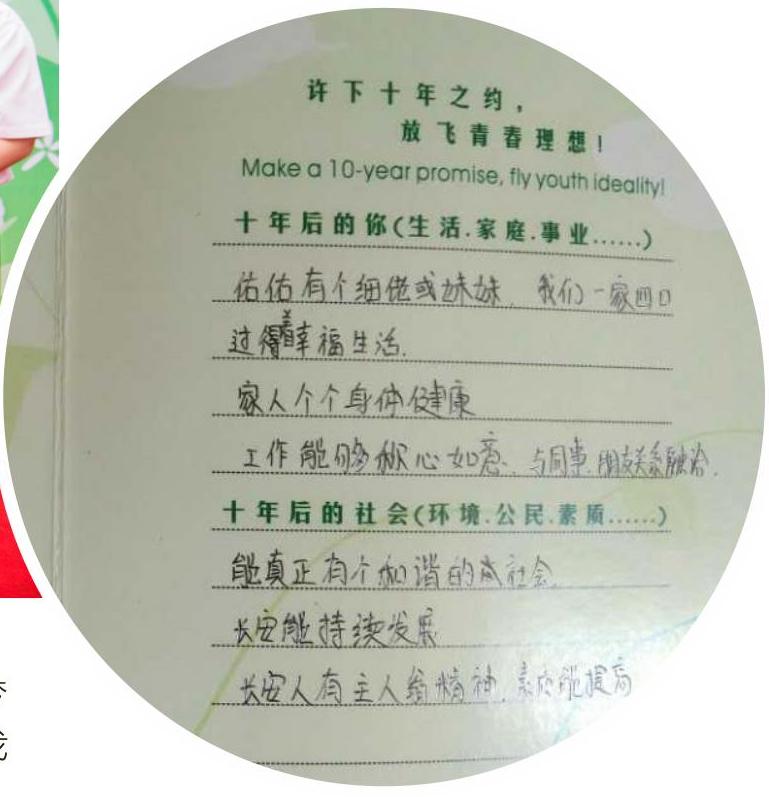 许下十年之约，
放飞青春理想！
Make a 10-year promise, fly youth ideality!
十年后的你(生活.家庭.事业……)
佑佑有个细佬或妹妹，我们一家四口
过得着幸福生活.
家人个个身体健康
工作能够称心如意、与同事.朋友关系融洽.
十年后的社会(环境.公民.素质……)
能真正有个和谐的社会
长安能持续发展
长安人有主人翁精神，素质能提高